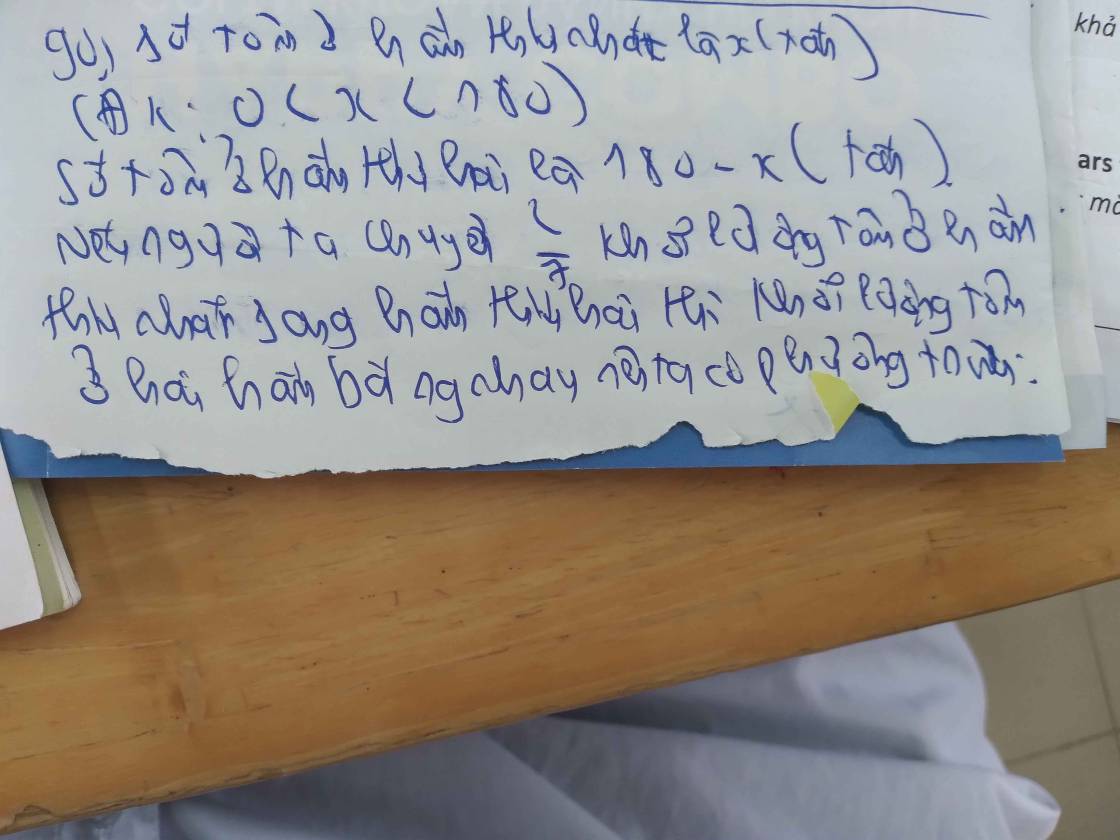 gọi số tôn ở hầm thứ nhất là x (tấn)
(ĐK: 0 < x < 180)
số tôn ở hầm thứ hai là 180 - x (tấn)
Nếu người ta chuyển 2/7 khối lượng tôn ở hầm
thứ nhất sang hầm thứ hai thì khối lượng tôn
ở hai hầm bằng nhau nên ta có phương trình:
khả
ars